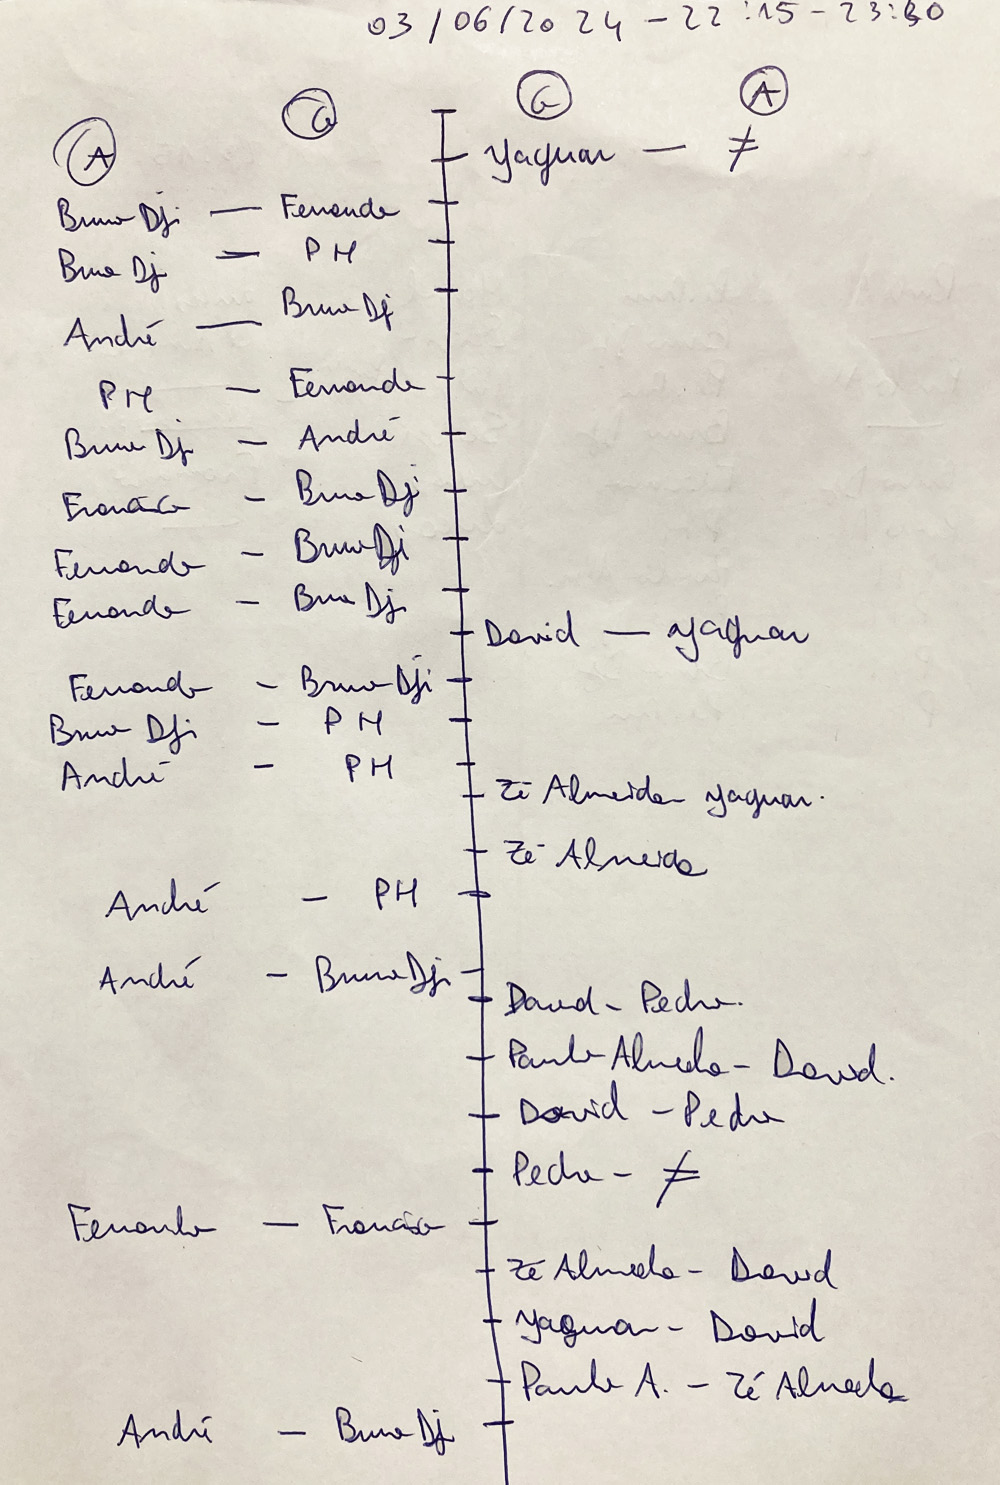 03/06/2024 - 22:15 - 23:30
A G G A
Yaguar — ≠
Bruno Dji — Fernando
Bruno Dji — PH
André — Bruno Dji
PH — Fernando
Bruno Dji - André
Francisco - Bruno Dji
Fernando - Bruno Dji
Fernando - Bruno Dji
David — Yaguar
Fernando - Bruno Dji
Bruno Dji - PH
André - PH
Zé Almeida - Yaguar
Zé Almeida
André - PH
André - Bruno Dji
David - Pedro
Paulo Almeida - David
David - Pedro
Pedro - ≠
Fernando — Francisco
Zé Almeida - David
Yaguar - David
Paulo A. - Zé Almeida
André - Bruno Dji